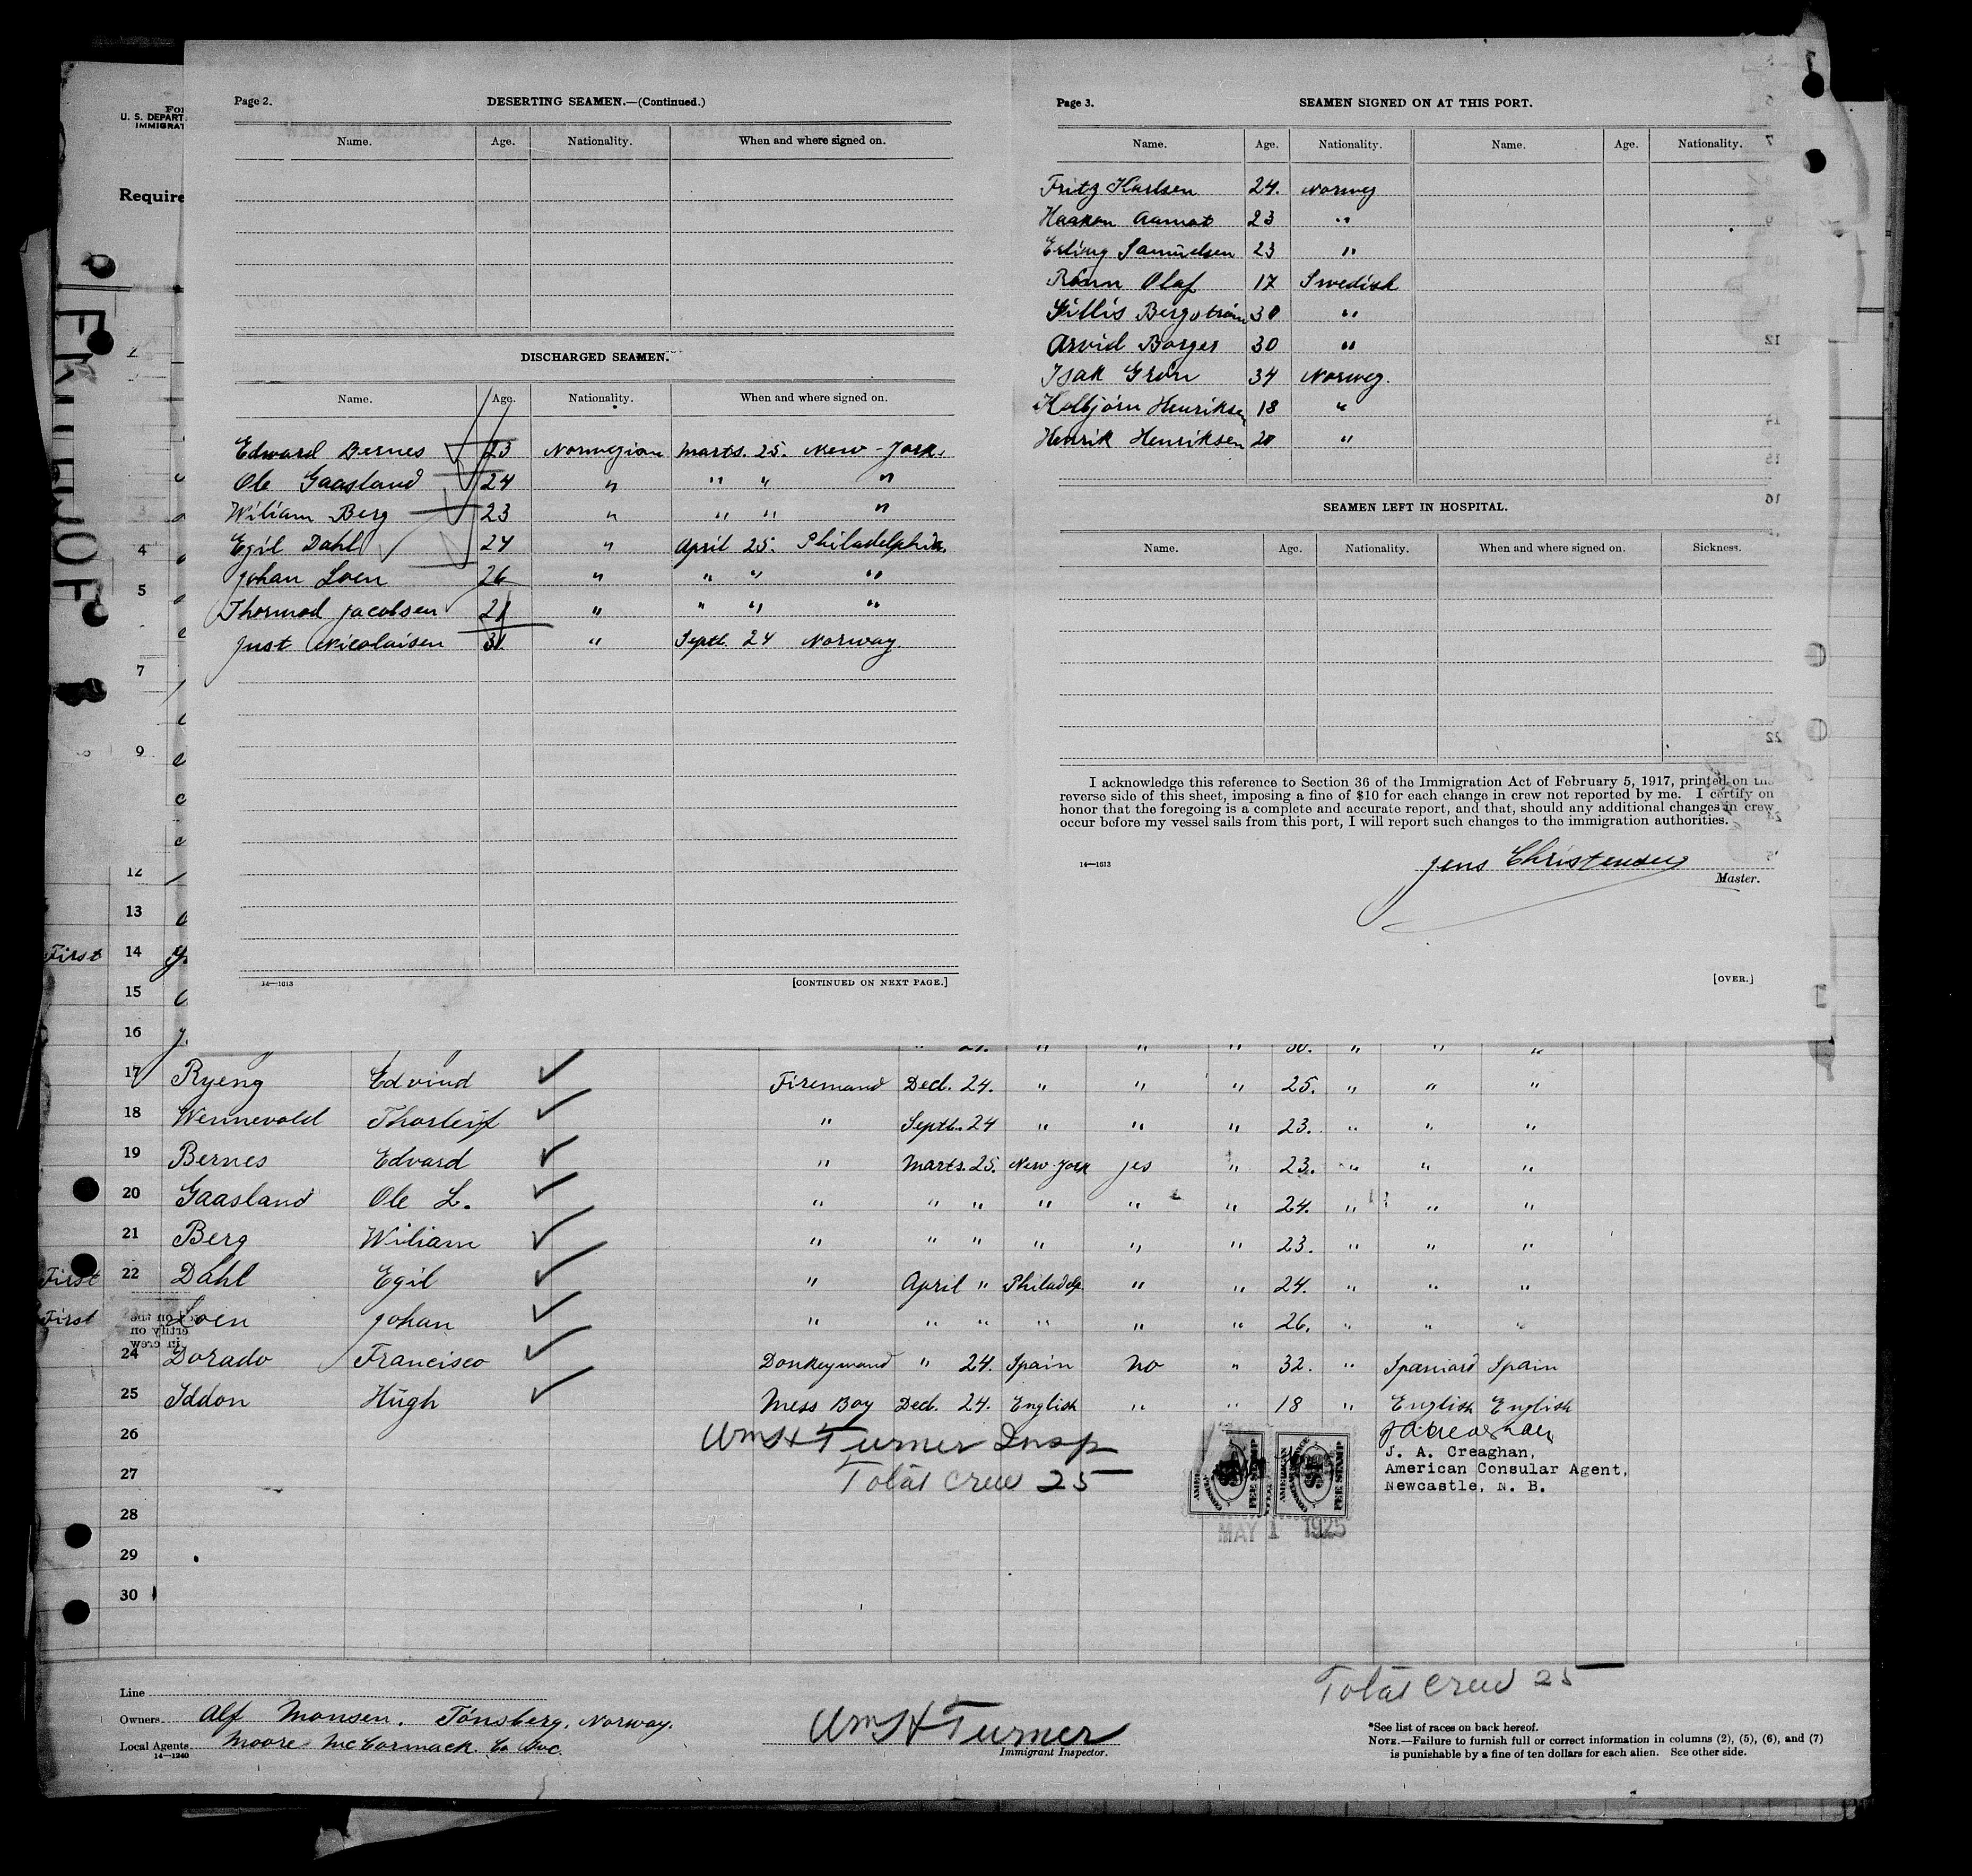 For
U. S. DEPART
IMMIGRAT
Require
FRITHJOF
Page 2.
DESERTING SEAMEN.—(Continued.)
Name. Age. Nationality. When and where signed on.
DISCHARGED SEAMEN.
Name. Age. Nationality. When and where signed on.
Edward Bernes 23 Norwegian Marts. 25. New-York.
Ole Gaasland 24 " " " "
Wiliam Berg 23 " " " "
Egil Dahl 24 " April 25. Philadelphia.
Johan Loen 26 " " " "
Thormod Jacobsen 21 " " " "
Just Nicolaisen 31 " Septl. 24 Norway.
14—1613
[CONTINUED ON NEXT PAGE.]
Page 3.
SEAMEN SIGNED ON AT THIS PORT.
Name. Age. Nationality. Name. Age. Nationality.
Fritz Karlsen 24. Norweg
Haakon Aamot 23 "
Erling Samuelsen 23 "
Olaf 17 Swedish
Bergström 30 "
Arvid Borger 30 "
Isak Grön 34 Norweg.
Kolbjörn Henriksen 18 "
Henrik Henriksen 20 "
SEAMEN LEFT IN HOSPITAL.
Name. Age. Nationality. When and where signed on. Sickness.
I acknowledge this reference to Section 36 of the Immigration Act of February 5, 1917, printed on the
reverse side of this sheet, imposing a fine of $10 for each change in crew not reported by me. I certify on
honor that the foregoing is a complete and accurate report, and that, should any additional changes in crew
occur before my vessel sails from this port, I will report such changes to the immigration authorities.
14—1613
Jens Christensen
Master.
[OVER.]
2
3
4
5
7
9
12
13
First 14
15
16
17 Ryeng Edvind Firemand Decl. 24. " " " 25. " " "
18 Wennevold Thorleif " Septbr. 24 " " " 23. " " "
19 Bernes Edvard " Marts. 25. New-York yes " 23. " " "
20 Gaasland Ole L. " " " " " " 24. " " "
21 Berg Wiliam " " " " " " 23. " " "
First 22 Dahl Egil " April " Philadelp. " " 24. " " "
First Loen Johan " " " " " " 26. " " "
24 Dorado Francisco Donkeymand " 24. Spain No " 32. " Spaniard Spain
25 Iddon Hugh Mess Boy Decl. 24. English " " 18 " English English
26 Wm H Turner Insp
J A Creaghan
J. A. Creaghan,
American Consular Agent,
Newcastle, N. B.
27 Total Crew 25
AMERICAN CONSULAR SERVICE $1 FEE STAMP
MAY 1 1925
28
29
30
Total Crew 25
Line
Owners Alf Monsen. Tönsberg, Norway.
Local Agents Moore-McCormack Co Inc.
14—1240
Wm H Turner
Immigrant Inspector.
*See list of races on back hereof.
NOTE.—Failure to furnish full or correct information in columns (2), (5), (6), and (7)
is punishable by a fine of ten dollars for each alien. See other side.